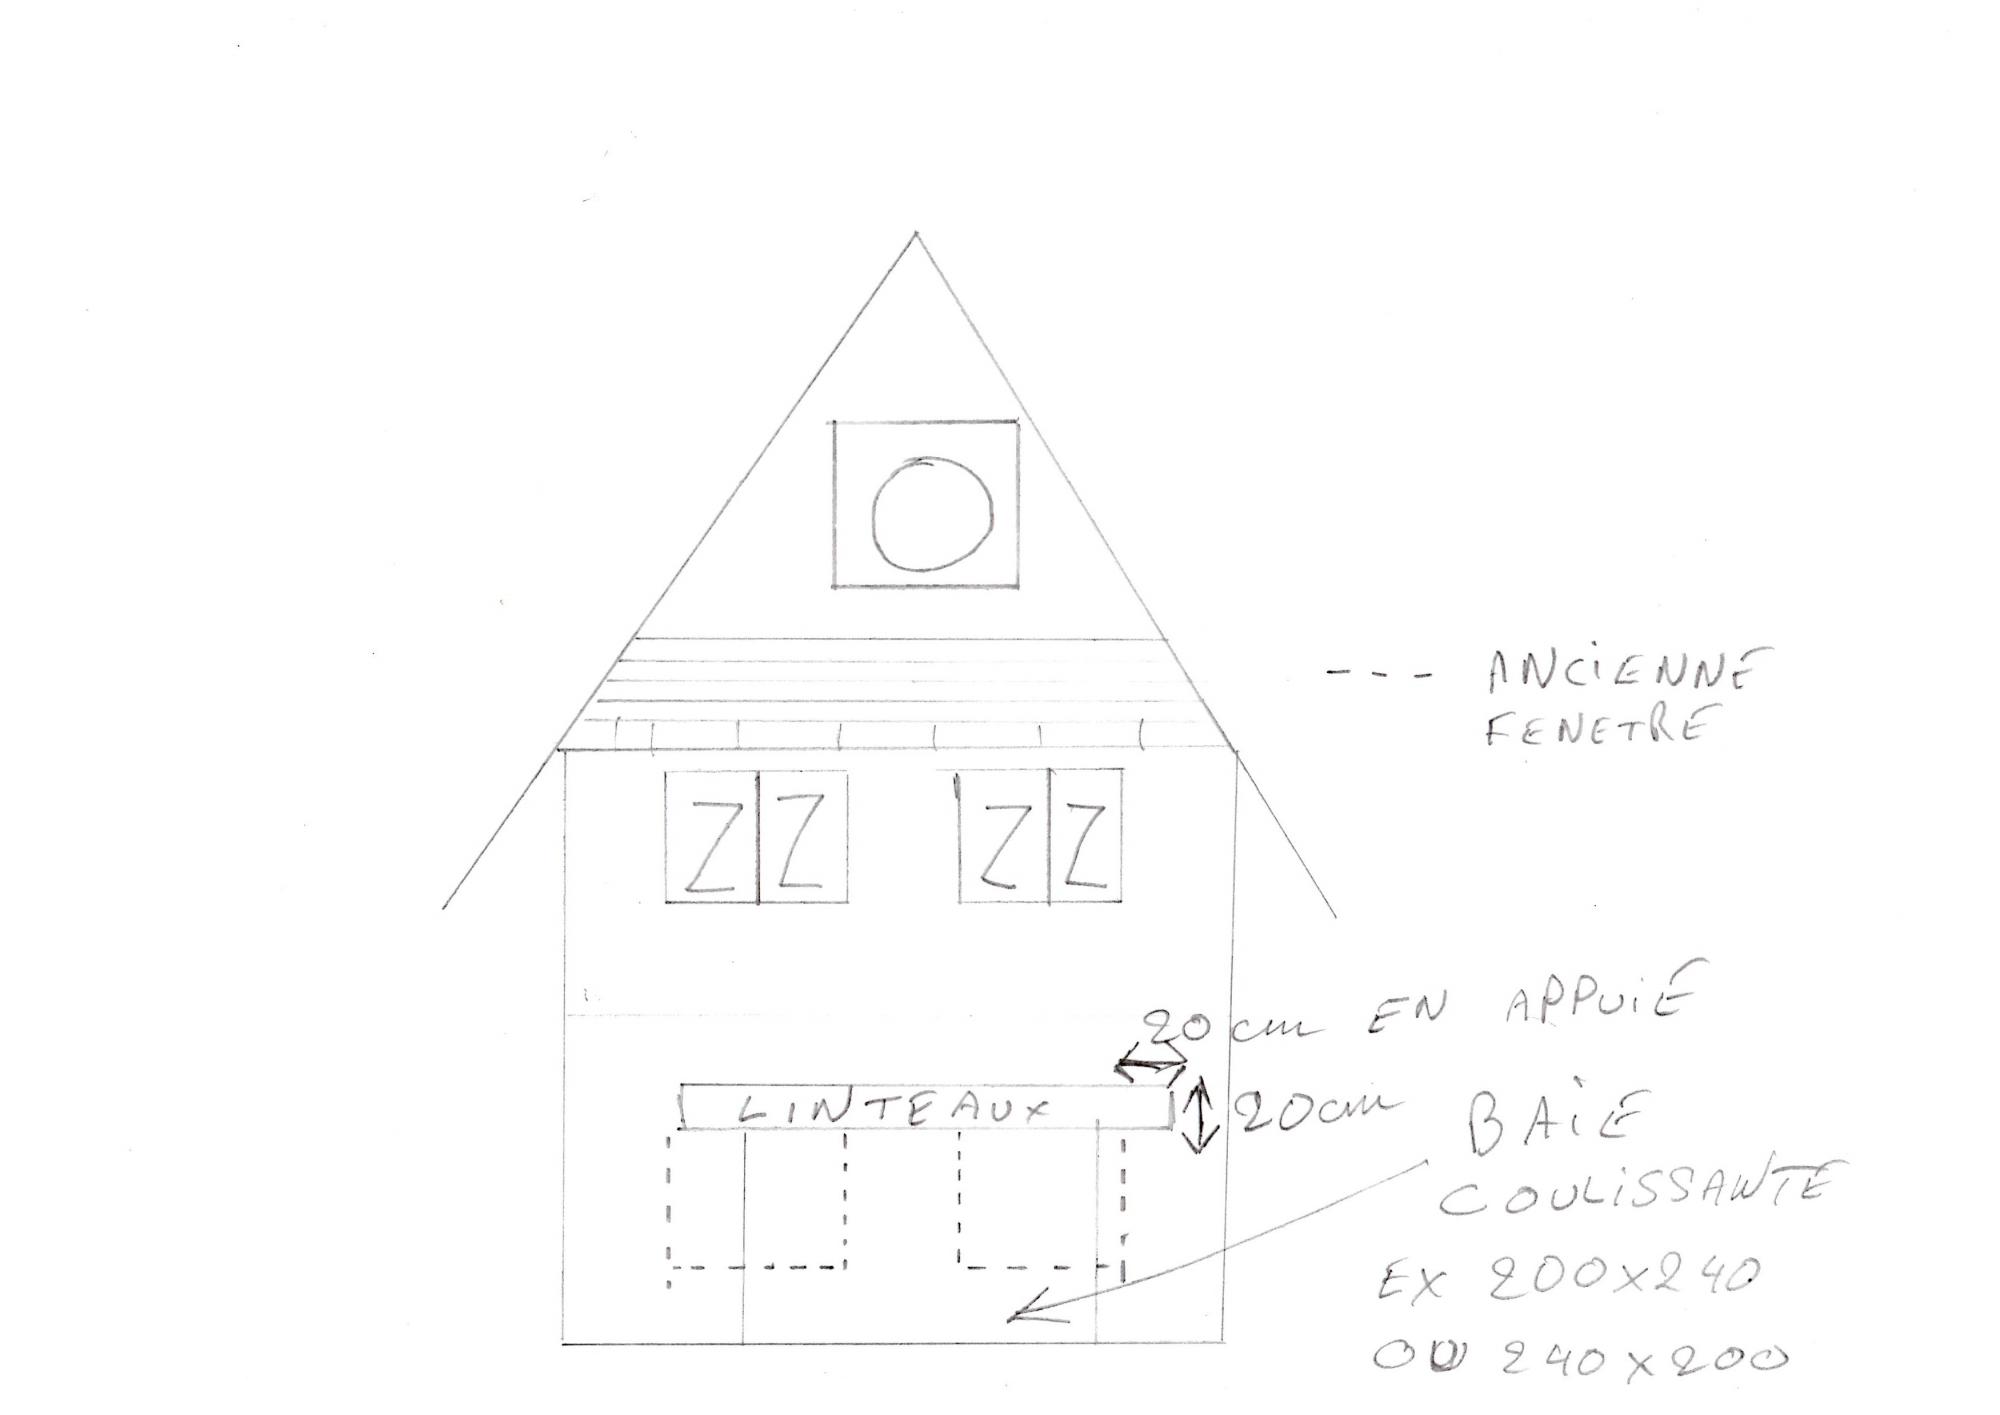 --- ANCIENNE
FENETRE
20 cm EN APPUIE
LINTEAUX
20cm
BAIE
COULISSANTE
EX 200x240
OU 240x200